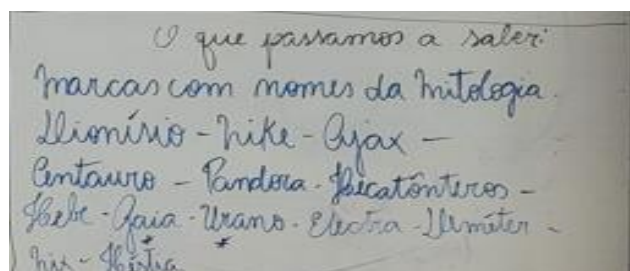 O que passamos a saber:
Marcas com nomes da Mitologia.
Dionísio - Nike - Ajax -
Centauro - Pandora - Hecatônteros -
Hebe - Gaia - Urano - Electra - Deméter -
Nix - Héstia